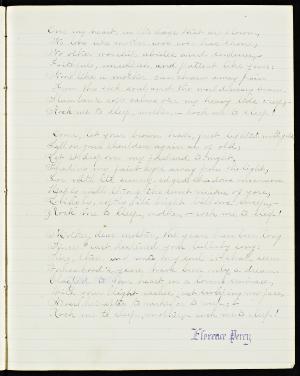 Over my heart, in the days that are flown,
No love like mother-love ever has shone;
No other worship abides and endures,
Faithful, unselfish, and patient like yours:
None like a mother can charm away pain
From the sick soul and the world-weary brain.
Slumber's soft calms o'er my heavy lids creep;—
Rock me to sleep, mother, – rock me to sleep!
Come, let your brown hair, just lighted with gold,
Fall on your shoulders again as of old;
Let it drop over my forehead to-night,
Shading my faint eyes away from the light;
For with its sunny-edged shadows once more
Haply will throng the sweet visions of yore;
Lovingly, softly, its bright billows sweep;–
Rock me to sleep, mother, – rock me to sleep!
Mother, dear mother, the years have been long
Since I last listened your lullaby song:
Sing, then, and unto my soul it shall seem
Womanhood's years have been only a dream.
Clasped to your heart in a loving embrace,
With your light lashes just sweeping my face,
Never hereafter to wake or to weep;–
Rock me to sleep, mother, – rock me to sleep!
Florence Percy